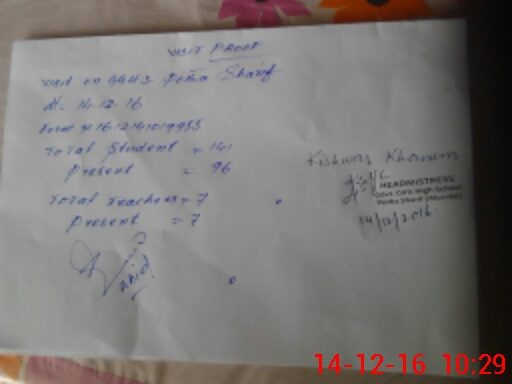 VISIT PROOF
Visit on GGHS Potha Sharif
At= 14-12-16
Total Student = 141
Present = 96
Total Teachers = 7
Present = 7
Kishwar
HEADMISTRESS
Govt Girls High School
Potha Sharif (Murree)
14/12/2016
14-12-16 10:29